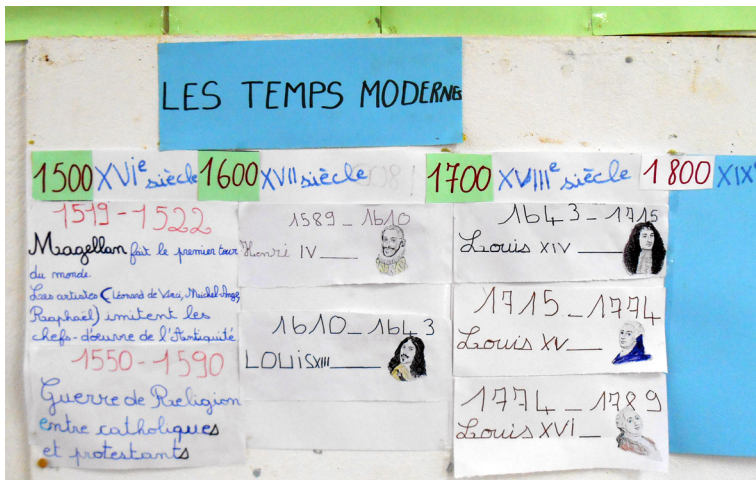 LES TEMPS MODERNES
1500 XVIe siècle 1600 XVII siècle 1700 XVIIIe siècle 1800 XIXe
1519-1522
Magellan fait le premier tour
du monde.
Les artistes (Léonard de Vinci, Michel-Ange,
Raphaël) imitent les
chefs-d'œuvre de l'Antiquité
1550-1590
Guerre de Religion
entre catholiques
et protestants
1589_1610
Henri IV
1610_1643
LOUIS XIII
1643-1715
Louis XIV
1715-1774
Louis XV
1774_1789
Louis XVI